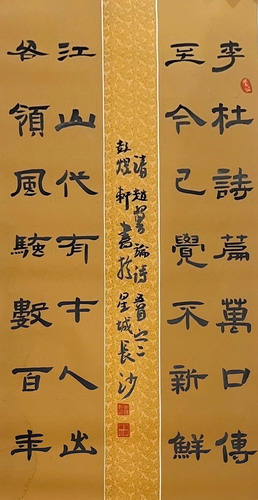 李杜詩篇萬口傳
至今已覺不新鮮
江山代有才人出
各領風騷數百年
清趙翼論詩首之二
煜軒書於星城長沙